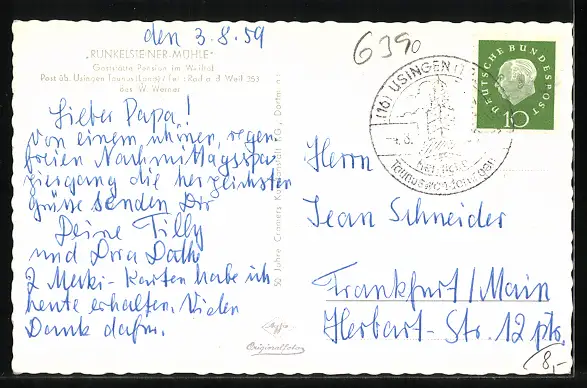 den 3.8.59
6390
"RUNKELSTEINER-MÜHLE"
Gaststätte Pension im Weiltal
Post üb. Usingen Taunus (Land) / Tel.: Rod a. d. Weil 353
W. Werner
Lieber Papa!
Von einem schönen, regen
freien Nachmittagsspa
ziergang die herzlichsten
Grüße senden Dir
Deine Tilly
und Dora Dathe
2 Merki-Karten habe ich
heute erhalten. Vielen
Dank dafür.
50 Jahre Cramers Kunstanstalt KG., Dortm
Agfa
Originalfoto
(16) USINGEN (T
DEUTSCHE BUNDESPOST
10
Herrn
Jean Schneider
Frankfurt/Main
Herbart-Str. 12 ptr.
8,-